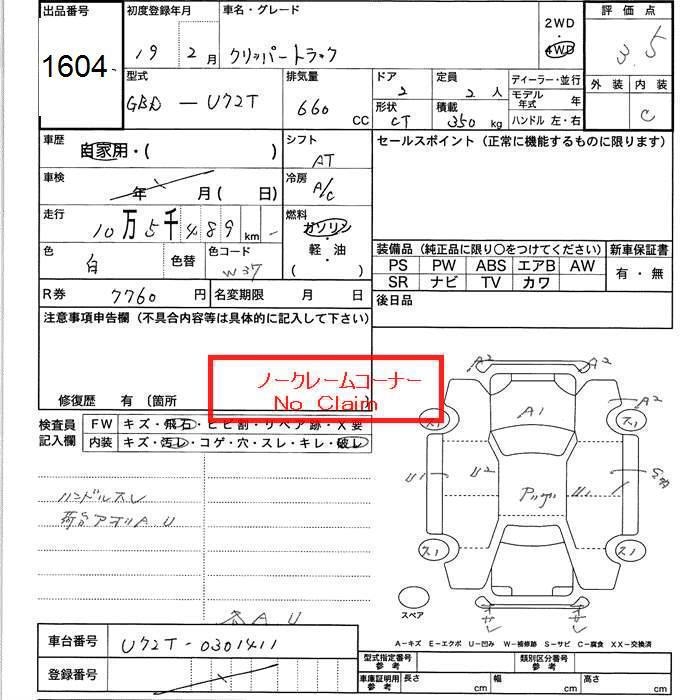 出品番号 初度登録年月 車名・グレード 2WD 評価点
1604 19 2月 クリッパートラック 4WD 3.5
型式 排気量 ドア 定員 ディーラー・並行 外装 内装
GBD-U72T 660 CC 2 2人 モデル年式 年 C
形状 積載 ハンドル 左・右
CT 350kg
車歴 自家用・( ) シフト AT セールスポイント(正常に機能するものに限ります)
車検 年 月( 日) 冷房 A/C
走行 10万5千489km 燃料 ガソリン・軽油
( )
色 白 色替 色コード W37
装備品(純正品に限り○をつけてください) 新車保証書
PS PW ABS エアB AW 有・無
SR ナビ TV カワ
R券 7760円 名変期限 月 日 後日品
注意事項申告欄(不具合内容等は具体的に記入して下さい)
ノークレームコーナー
No Claim
修復歴 有 〔箇所
検査員記入欄 FW キズ・飛石・ヒビ割・リペア跡・X要
内装 キズ・汚レ・コゲ・穴・スレ・キレ・破レ
A2 A2
A2
A1
ス1 ス1
U1 U2 U1
ハンドルスレ
ス1 ス1
スペア
A U
サビ サビ
A-キズ E-エクボ U-凹み W-補修跡 S-サビ C-腐食 XX-交換済
車台番号 U72T-0301411
登録番号
型式指定番号 参考 類別区分番号 参考
車庫証明用 参考 長さ cm 幅 cm 高さ cm